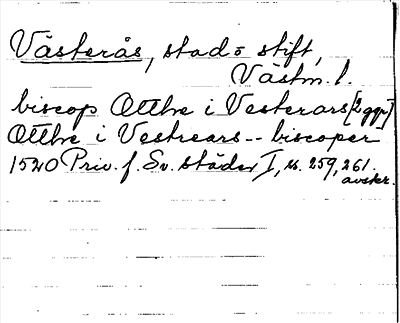 Västerås, stad o stift,
Västm. l.
biscop Otthe i Vesterars [2 ggr]
Otthe i Vestrears -- biscoper
1520 Priv. f. Sv. städer I, s. 259, 261.
avskr.